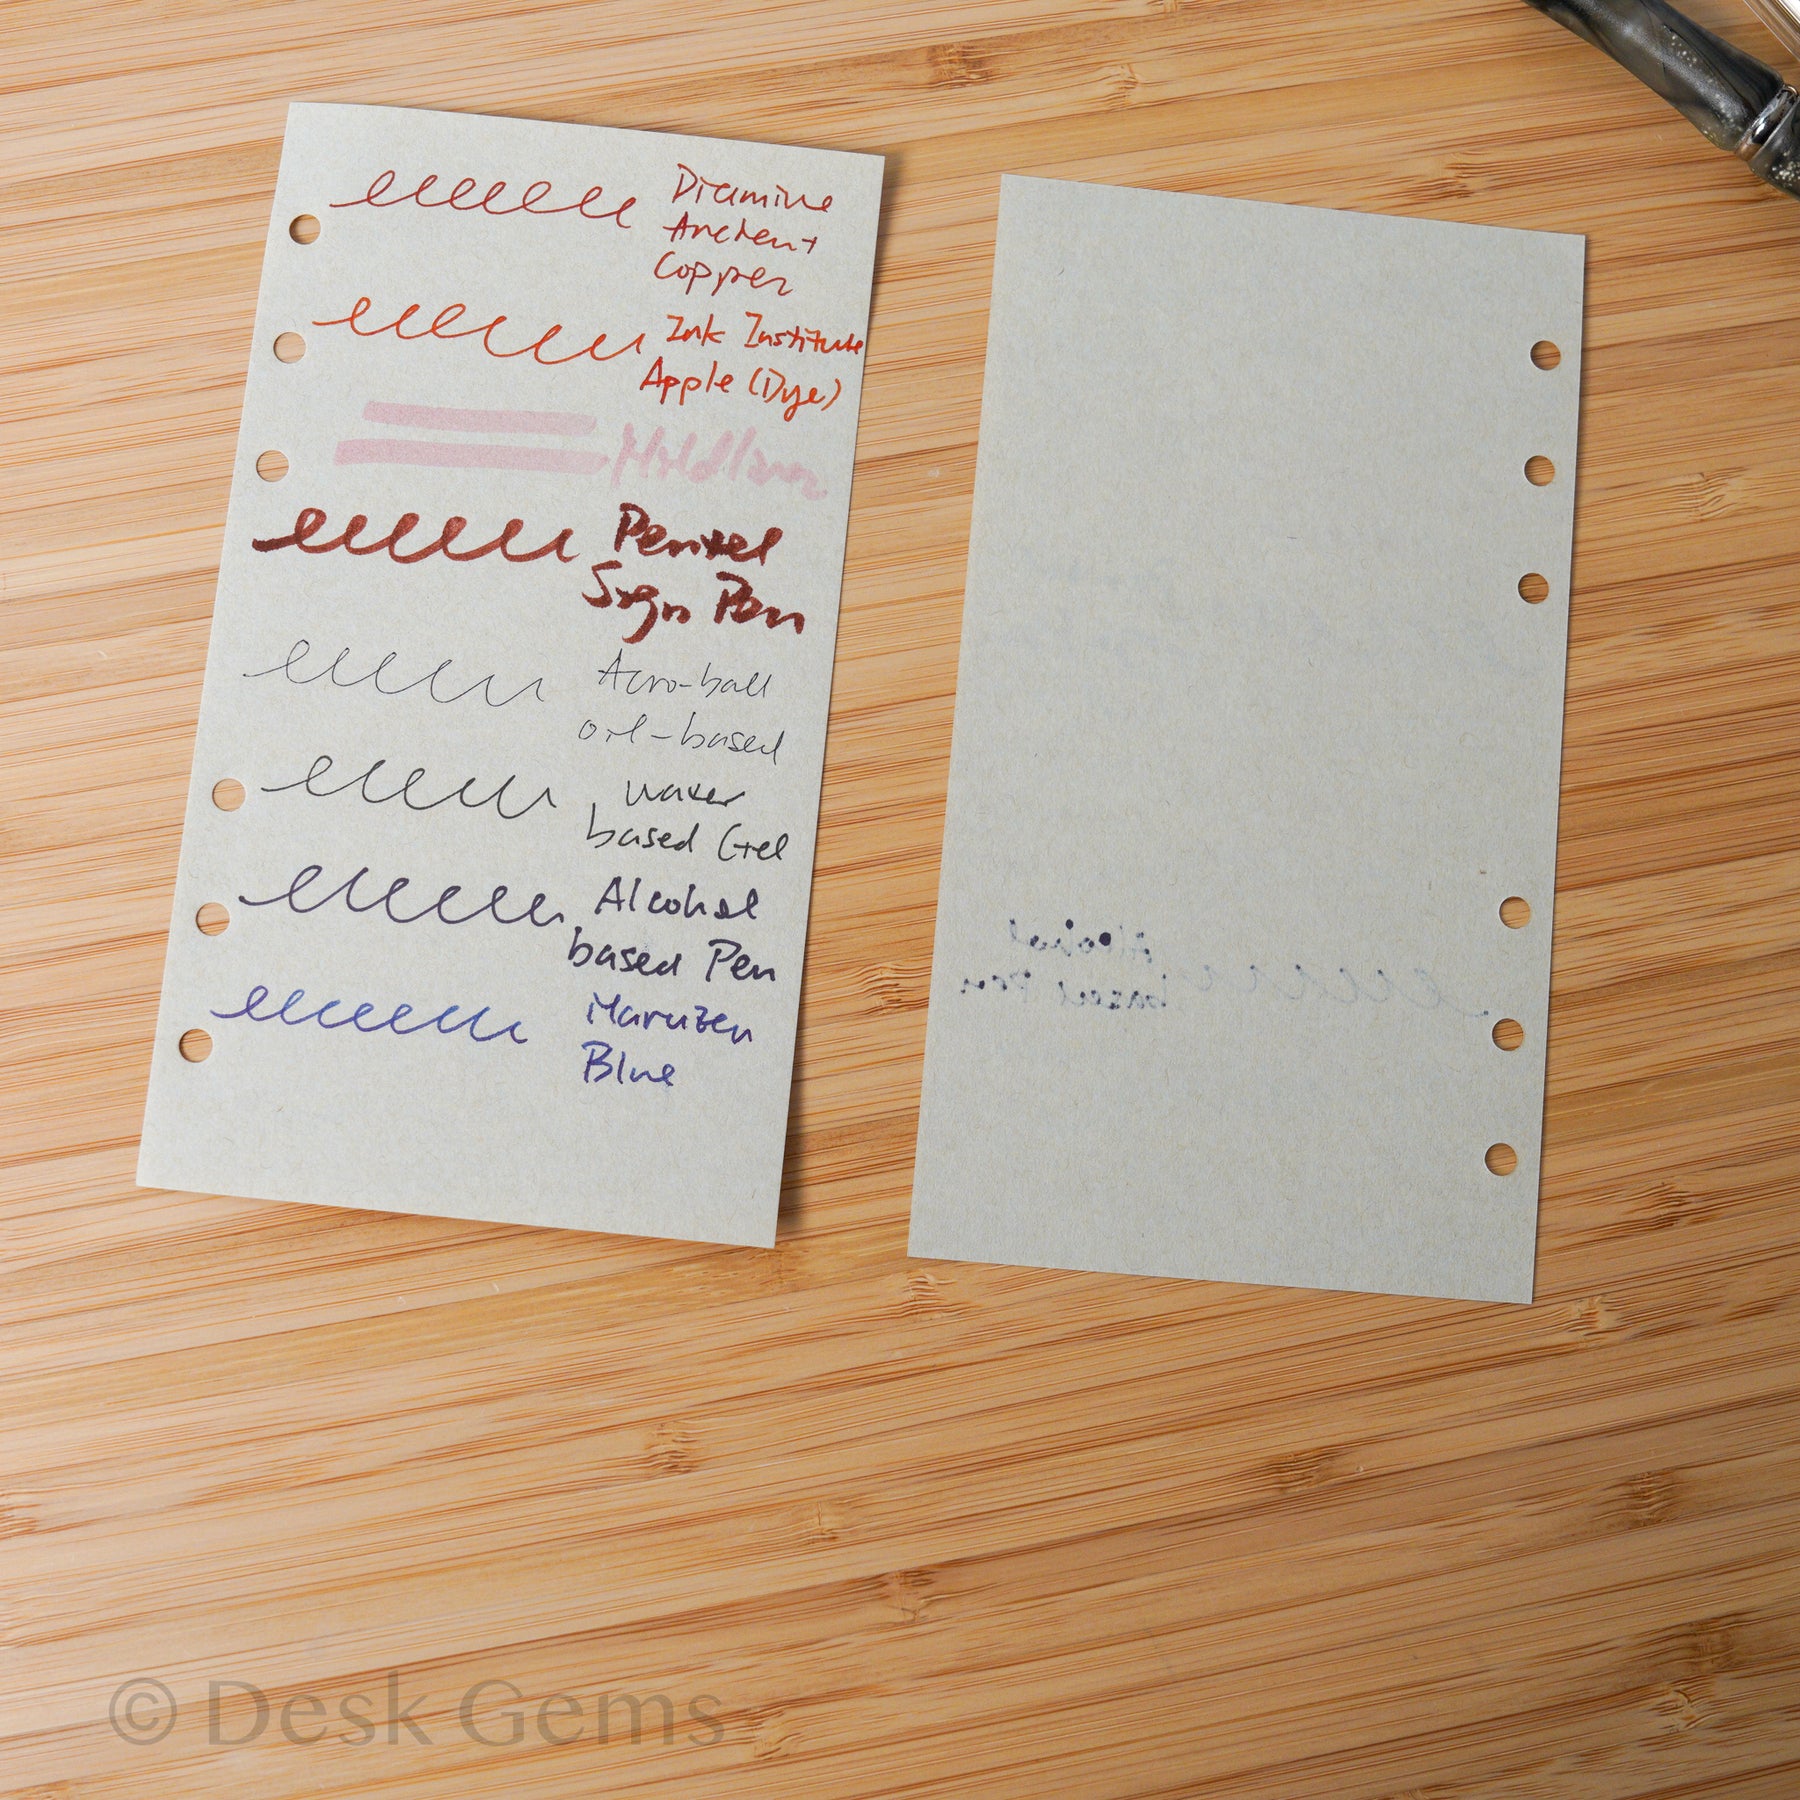 Diamine
Ancient
Copper
Ink Institute
Apple (Dye)
Mildliner
Pentel
Sign Pen
Acro-ball
oil-based
water
based Gel
Alcohol
based Pen
Maruzen
Blue
Alcohol
based Pen
© Desk Gems